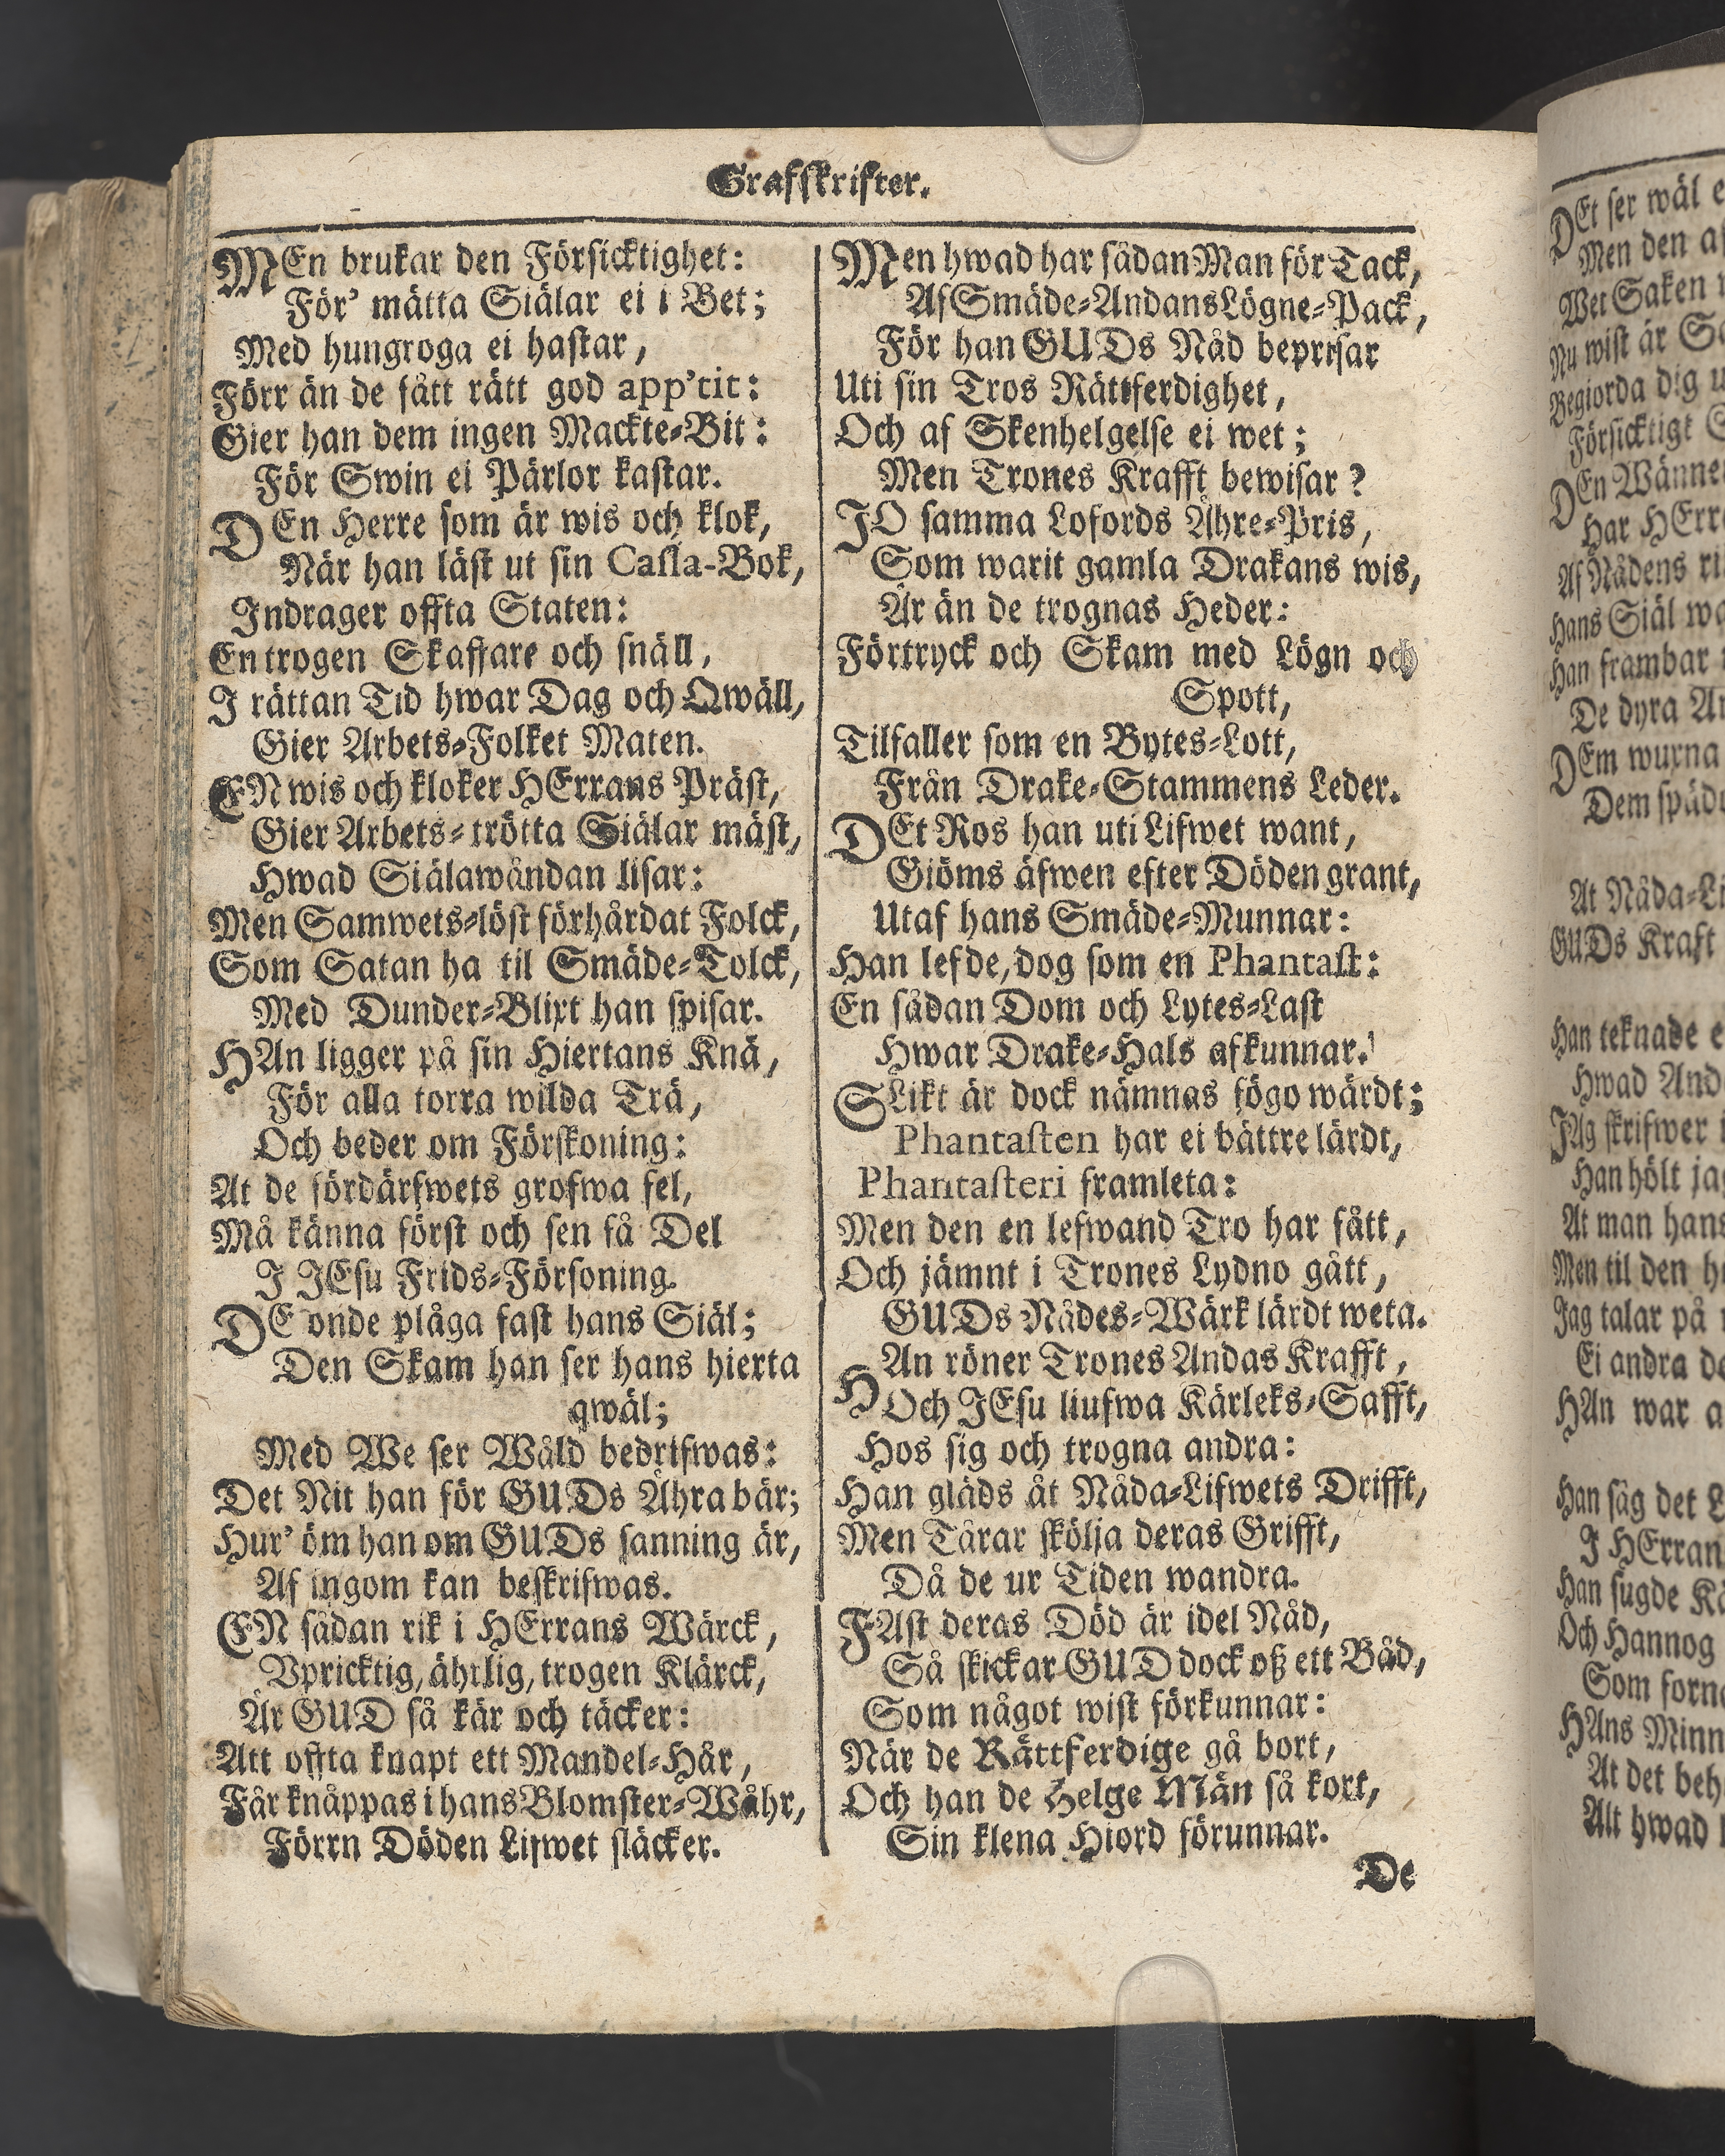 Grafskrifter.
MEn brukar den Försicktighet:
För' mätta Siälar ei i Bet;
Med hungroga ei hastar,
Förr än de fått rätt god app'tit:
Gier han dem ingen Mackte-Bit:
För Swin ei Pärlor kastar.
DEn Herre som är wis och klok,
När han läst ut sin Cassa-Bok,
Indrager offta Staten:
En trogen Skaffare och snäll,
I rättan Tid hwar Dag och Qwäll,
Gier Arbets-Folket Maten.
EN wis och kloker HErrans Präst,
Gier Arbets-trötta Siälar mäst,
Hwad Siälawåndan lisar:
Men Samwets-löst förhårdat Folck,
Som Satan ha til Smäde-Tolck,
Med Dunder-Blixt han spisar.
HAn ligger på sin Hiertans Knä,
För alla torra wilda Trä,
Och beder om Förskoning:
At de fördärfwets grofwa fel,
Må känna först och sen få Del
I JEsu Frids-Försoning.
DE onde plåga fast hans Siäl;
Den Skam han ser hans hierta
qwäl;
Med We ser Wåld bedrifwas:
Det Nit han för GUDs Ähra bär;
Hur' öm han om GUDs sanning är,
Af ingom kan beskrifwas.
EN sådan rik i HErrans Wärck,
Upricktig, ährlig, trogen Klärck,
Är GUD så kär och täcker:
Att offta knapt ett Mandel-Hår,
Får knåppas i hans Blomster-Wåhr,
Förrn Döden Lifwet släcker.
Men hwad har sådan Man för Tack,
Af Smäde-Andans Lögne-Pack,
För han GUDs Nåd beprisar
Uti sin Tros Rättferdighet,
Och af Skenhelgelse ei wet;
Men Trones Krafft bewisar?
JO samma Lofords Ähre-Pris,
Som warit gamla Drakans wis,
Är än de trognas Heder:
Förtryck och Skam med Lögn och
Spott,
Tilfaller som en Bytes-Lott,
Från Drake-Stammens Leder.
DEt Ros han uti Lifwet want,
Giöms äfwen efter Döden grant,
Utaf hans Smäde-Munnar:
Han lefde, dog som en Phantast:
En sådan Dom och Lytes-Last
Hwar Drake-Hals afkunnar.
SLikt är dock nämnas fögo wärdt;
Phantasten har ei bättre lärdt,
Phantasteri framleta:
Men den en lefwand Tro har fått,
Och jämnt i Trones Lydno gått,
GUDs Nådes-Wärk lärdt weta.
HAn röner Trones Andas Krafft,
Och JEsu liufwa Kärleks-Safft,
Hos sig och trogna andra:
Han gläds åt Nåda-Lifwets Drifft,
Men Tårar skölja deras Grifft,
Då de ur Tiden wandra.
FAst deras Död är idel Nåd,
Så skickar GUD dock oß ett Båd,
Som något wist förkunnar:
När de Rättferdige gå bort,
Och han de Helge Män så kort,
Sin klena Hiord förunnar.
De
DEt ser wäl
Men den
Wet Saken
Nu wist är
Begiorda dig
Försicktigt
DEn
Har
Af Nådens
Hans Siäl
Han frambar
De dyra
DEm wurna
Dem
At
GUDs Kraft
Han teknade
Hwad
JAg skrifwer
Han hölt
At man hans
Men til den
Jag talar på
Ei andra
HAn war
Han såg det
I
Han sugde
Och Hannog
Som
HAns
At det
Alt hwad